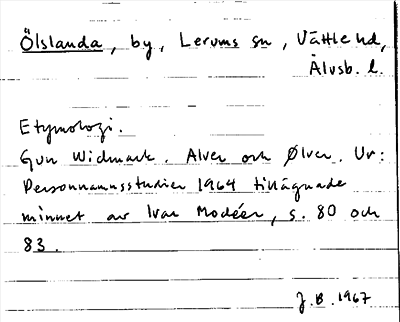 Ölslanda, by, Lerums sn, Vättle hd,
Älvsb. l.
Etymologi.
Gun Widmark. Alver och Ølver. Ur:
Personnamnsstudier 1964 tillägnade
minnet av Ivar Modéer, s. 80 och
83.
J.B. 1967